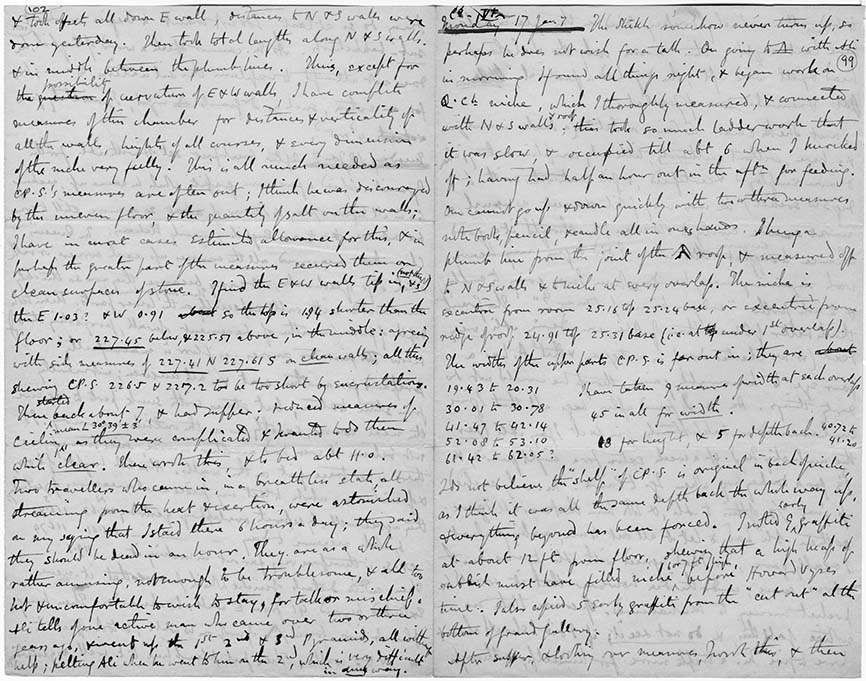 102
& took offset all down E wall, distances to N & S walls were
done yesterday. Then took total lengths along N & S walls.
& in middle between the plumb lines. Thus, except for
possibility
the question of curvature of E & W walls, I have complete
measures of this chamber for distances & verticality of
all the walls, heights of all courses, & every dimension
of the niche very fully. This is all much needed as
CP.S's measures are often out; I think he was discouraged
by the uneven floor, & the quantity of salt on the walls;
I have in most cases estimated allowance for this, & in
perhaps the greater part of the measures secured them on
clean surfaces of stone. I find the E & W walls tip in,
the E 1.03? & W 0.91 so the top is 1.94 shorter than the
floor; or 227.45 below, & 225.51 above, in the middle: agreeing
with side measures of 227.41 N 227.61 S on clean walls; all this
shewing CP.S. 226.5 & 227.2 to be too short by encrustations.
started
Then back about 7, & had supper. reduced measures of
mean 30°39' ± 3'
ceiling, as they were complicated & I wanted to do them
while clear. Then wrote this, & to bed abt 11.0.
Two travellers who came in, in a breathless state, all
streaming from the heat & exertion, were astonished
on my saying that I staid there 6 hours a day; they said
they should be dead in an hour. They are as a whole
rather amusing, not enough to be troublesome, & all too
hot & uncomfortable to wish to stay, for talk or mischief.
Ali tells of one active man who came over two or three
years ago, & went up the 1st 2nd & 3rd Pyramids, all without
help; pelting Ali when he went to him on the 2nd, which is very difficult
in one way.
99
Monday 17 Jan 7 The Sheikh somehow never turns up, so
perhaps he does not wish for a talk. On going to with Ali
in morning I found all things right, & began work on
Q. Ch. niche, which I thoroughly measured, & connected
with N & S walls & roof. this took so much ladder work that
it was slow, & occupied till abt 6 when I knocked
off; having had half an hour out in the aftn for feeding.
One cannot go up & down quickly with two or three measures
note book, pencil, & candle all in one's hands. I hung a
plumb line from the joint of the roof & measured off
to N & S walls & to niche at every overlap. The niche is
excentric from room 25.16 top 25.24 base, or excentric from
ridge of roof 24.91 top 25.31 base (i.e. at top under 1st overlap).
The widths of the upper parts CP.S. is far out in; they are about
19.43 to 20.31 I have taken 9 measures of width at each overlap
30.01 to 30.78 45 in all for width.
41.47 to 42.14 18 for height & 5 for depth back. 40.72 to
52.08 to 53.10 41.20
61.42 to 62.05?
I do not believe the "shelf" of CP.S. is original in back of niche
as I think it was all the same depth back the whole way up,
early
& everything beyond has been forced. I noted graffiti
at about 12 ft from floor, shewing that a high heap of
rubbish must have filled niche before Howard Vyse's
time. I also copied 5 early graffiti from the "cut out" at the
bottom of grand gallery.
After supper, & looking over measures, wrote this, & then